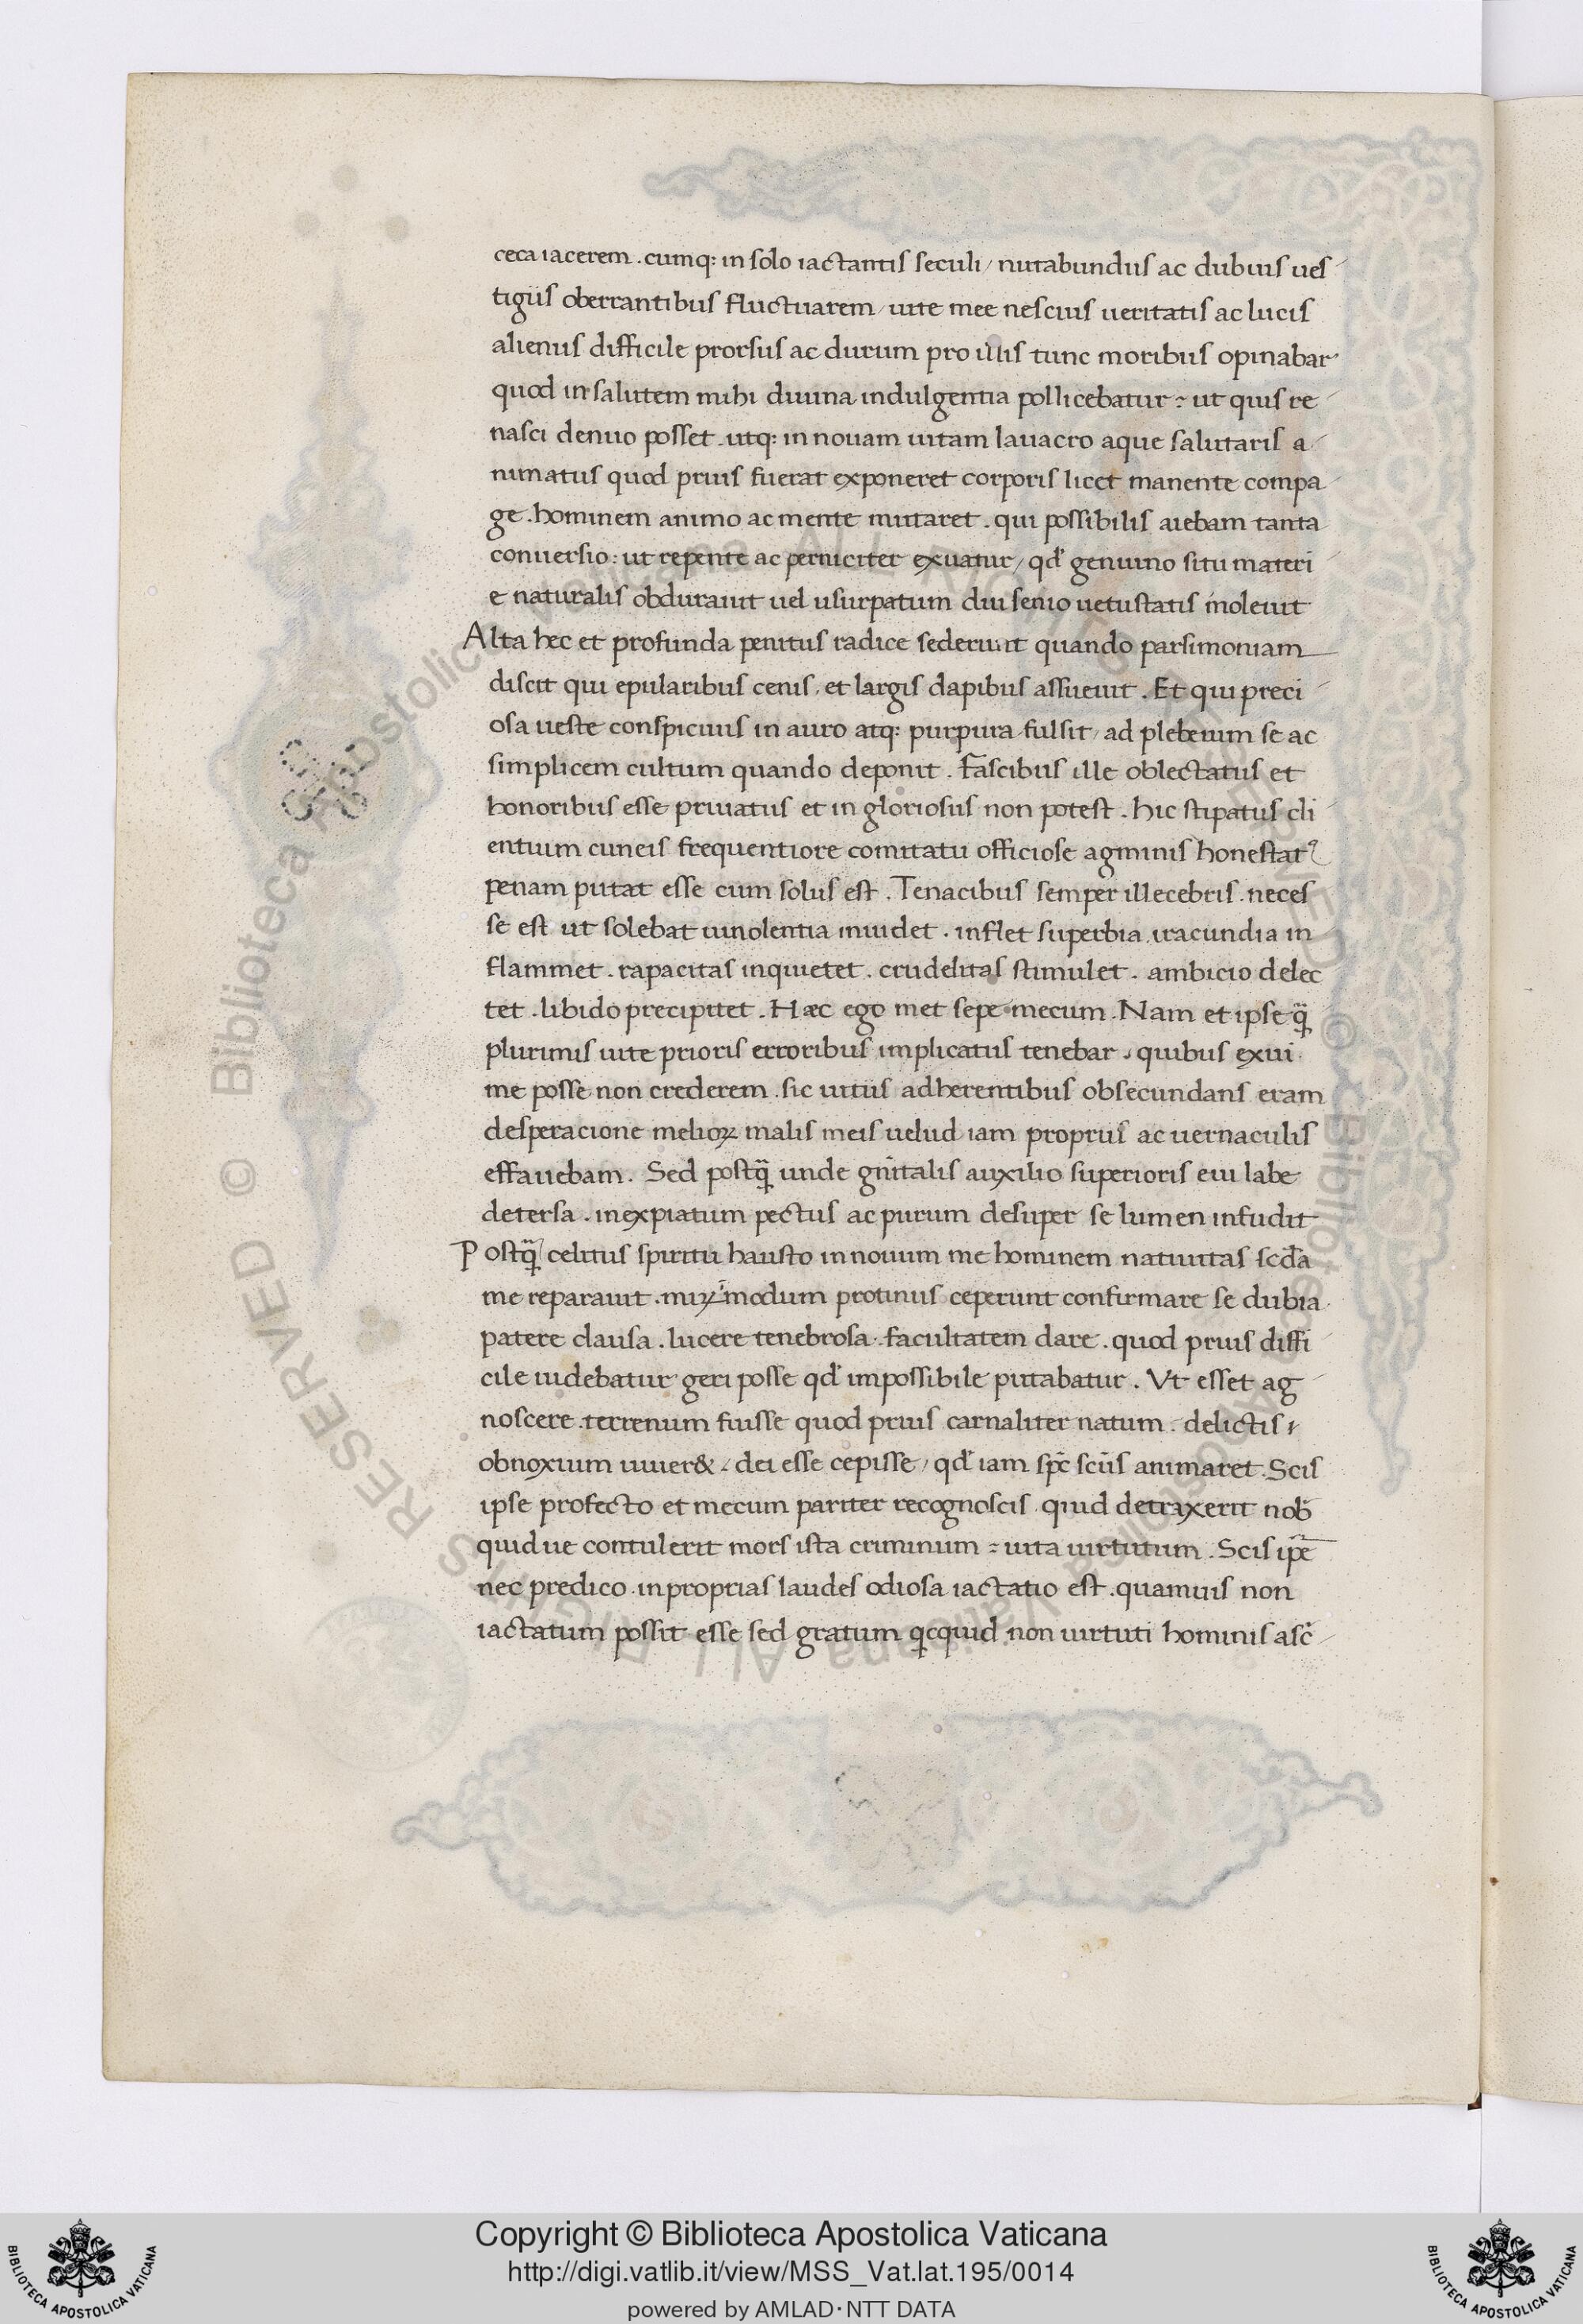 ceca iacerem . cumq: in solo iactantis seculi / nutabundus ac dubius ues
tigiis oberrantibus fluctuarem / uite mee nescius ueritatis ac lucis
alienus difficile prorsus ac durum pro illis tunc moribus opinabar
quod in salutem mihi diuina indulgentia pollicebatur : ut quis re
nasci denuo posset . utq: in nouam uitam lauacro aque salutaris a
nimatus quod prius fuerat exponeret corporis licet manente compa
ge . hominem animo ac mente mutaret . qui possibilis aiebam tanta
conuersio : ut repente ac perniciter exuatur / qđ genuino situ materi
e naturalis obdurauit uel usurpatum diu senio uetustatis inoleuit
Alta hec et profunda penitus radice sederunt quando parsimoniam
discit qui epularibus cenis . et largis dapibus assueuit . Et qui preci
osa ueste conspicuus in auro atq: purpura fulsit / ad plebeium se ac
simplicem cultum quando deponit . Fascibus ille oblectatus et
honoribus esse priuatus et in gloriosus non potest . hic stipatus cli
entium cuneis frequentiore comitatu officiose agminis honestat᷒
penam putat esse cum solus est . Tenacibus semper illecebris . neces
se est ut solebat uinolentia inuidet . inflet superbia . iracundia in
flammet . rapacitas inquietet . crudelitas stimulet . ambicio delec
tet . libido precipitet . Hæc ego met sepe mecum . Nam et ipse q̄
plurimis uite prioris erroribus implicatus tenebar . quibus exui
me posse non crederem . sic uitiis adherentibus obsecundans eram
desperacione melioꝝ malis meis uelud iam propriis ac uernaculis
effauebam . Sed postq̄ unde gn̄italis auxilio superioris eui labe
detersa . in expiatum pectus ac purum desuper se lumen infudit
Postq̄ celitus spiritu hausto in nouum me hominem natiuitas scđa
me reparauit . miꝝ̄ modum protinus ceperunt confirmare se dubia
patere clausa . lucere tenebrosa . facultatem dare . quod prius diffi
cile uidebatur geri posse qđ impossibile putabatur . Vt esset ag
noscere . terrenum fuisse quod prius carnaliter natum . delictis
obnoxium uiuer& . dei esse cepisse / qđ iam sp̄c sc̄us animaret . Scis
ipse profecto et mecum pariter recognoscis quid detraxerit nob̄
quid ue contulerit mors ista criminum : uita uirtutum . Scis ip̄e
nec predico . in proprias laudes odiosa iactatio est . quamuis non
iactatum possit esse sed gratum q̄cquid non uirtuti hominis asc̄
© Biblioteca Apostolica Vaticana ALL RIGHTS RESERVED
© Biblioteca Apostolica Vaticana ALL RIGHTS RESERVED
Copyright © Biblioteca Apostolica Vaticana
http://digi.vatlib.it/view/MSS_Vat.lat.195/0014
powered by AMLAD·NTT DATA
BIBLIOTECA APOSTOLICA VATICANA
BIBLIOTECA APOSTOLICA VATICANA